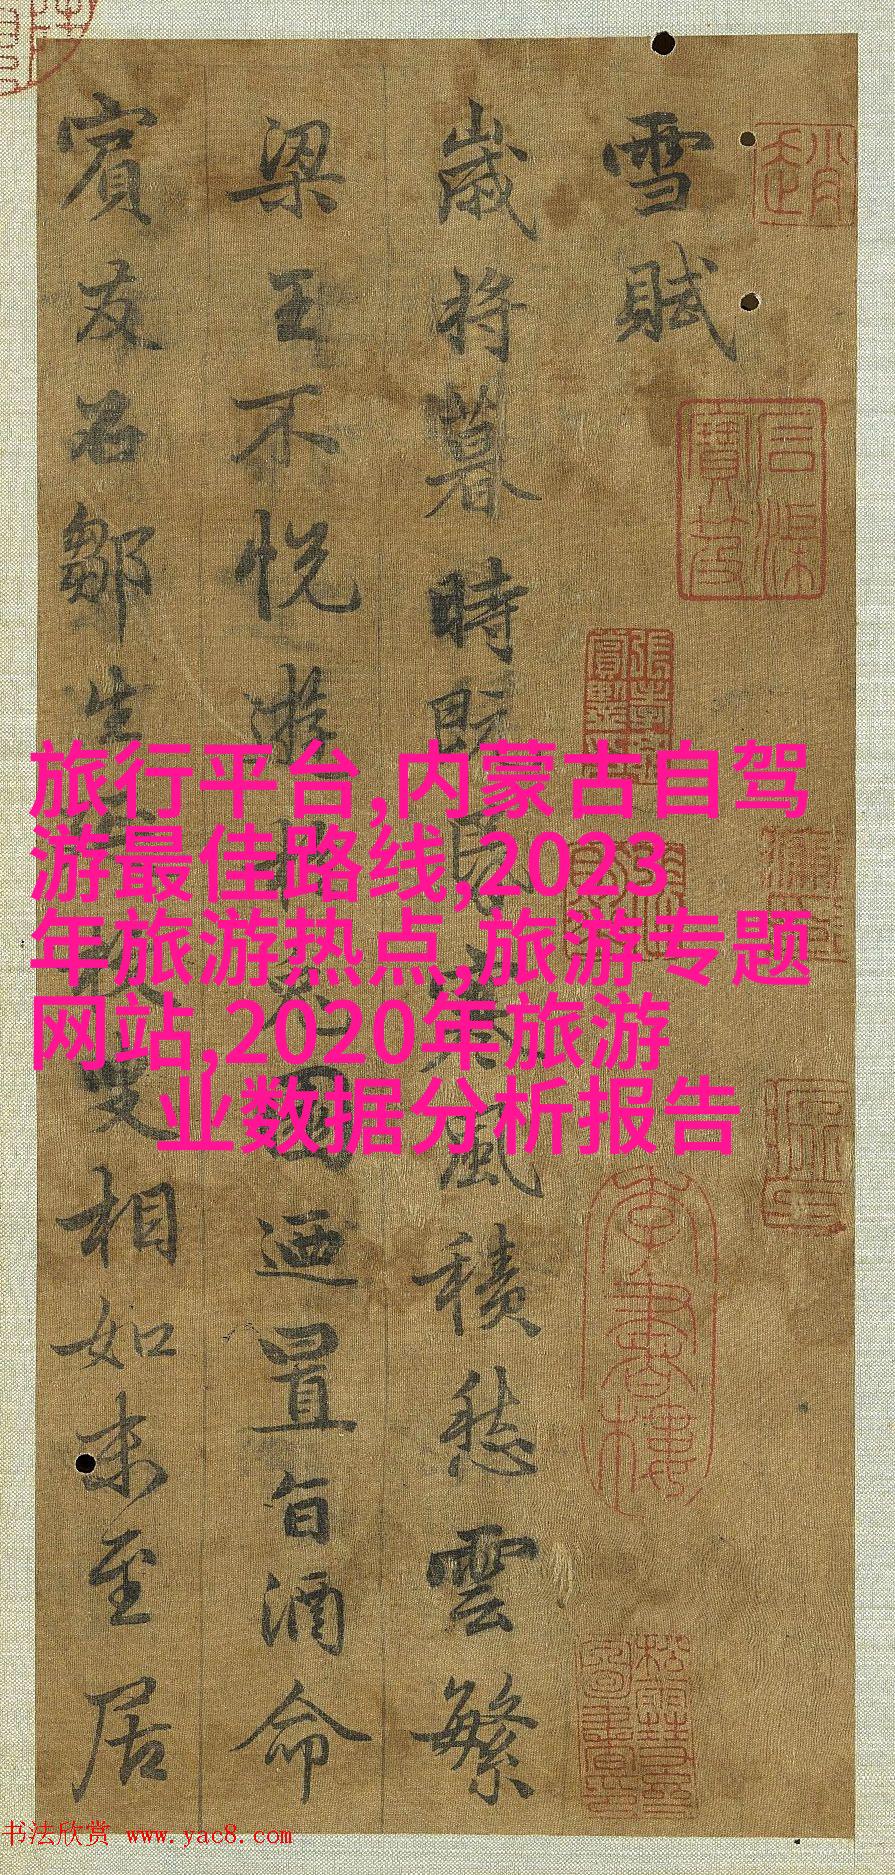 雪賦
歲将暮時既昏寒風積愁雲繁
梁王不悦遊兔園迺置旨酒命
賓友召鄒生枚叟相如末至居
旅行平台,内蒙古自驾
游最佳路线,2023
年旅游热点,旅游专题
网站,2020年旅游
业数据分析报告
书法欣赏 www.yac8.com